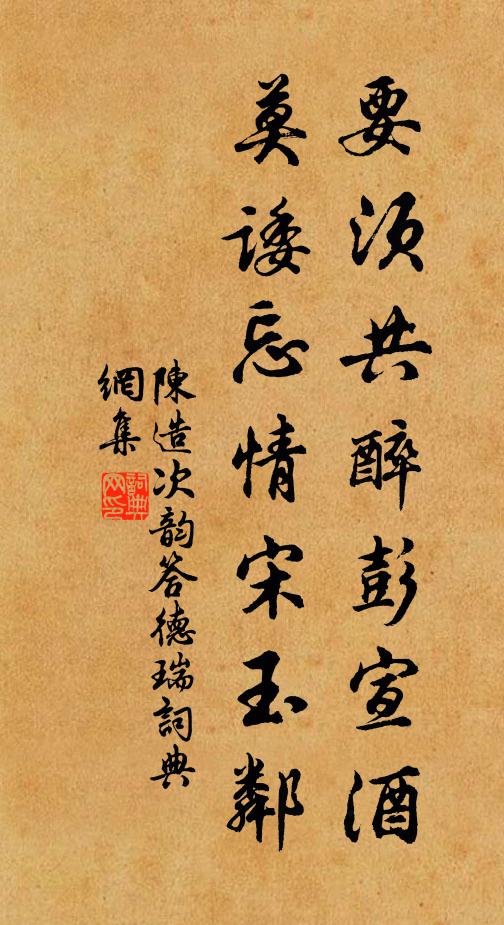 要須共醉彭宣酒
莫諉忘情宋玉鄰
陳造次韵答德瑞詞典
網集
詞典
网印